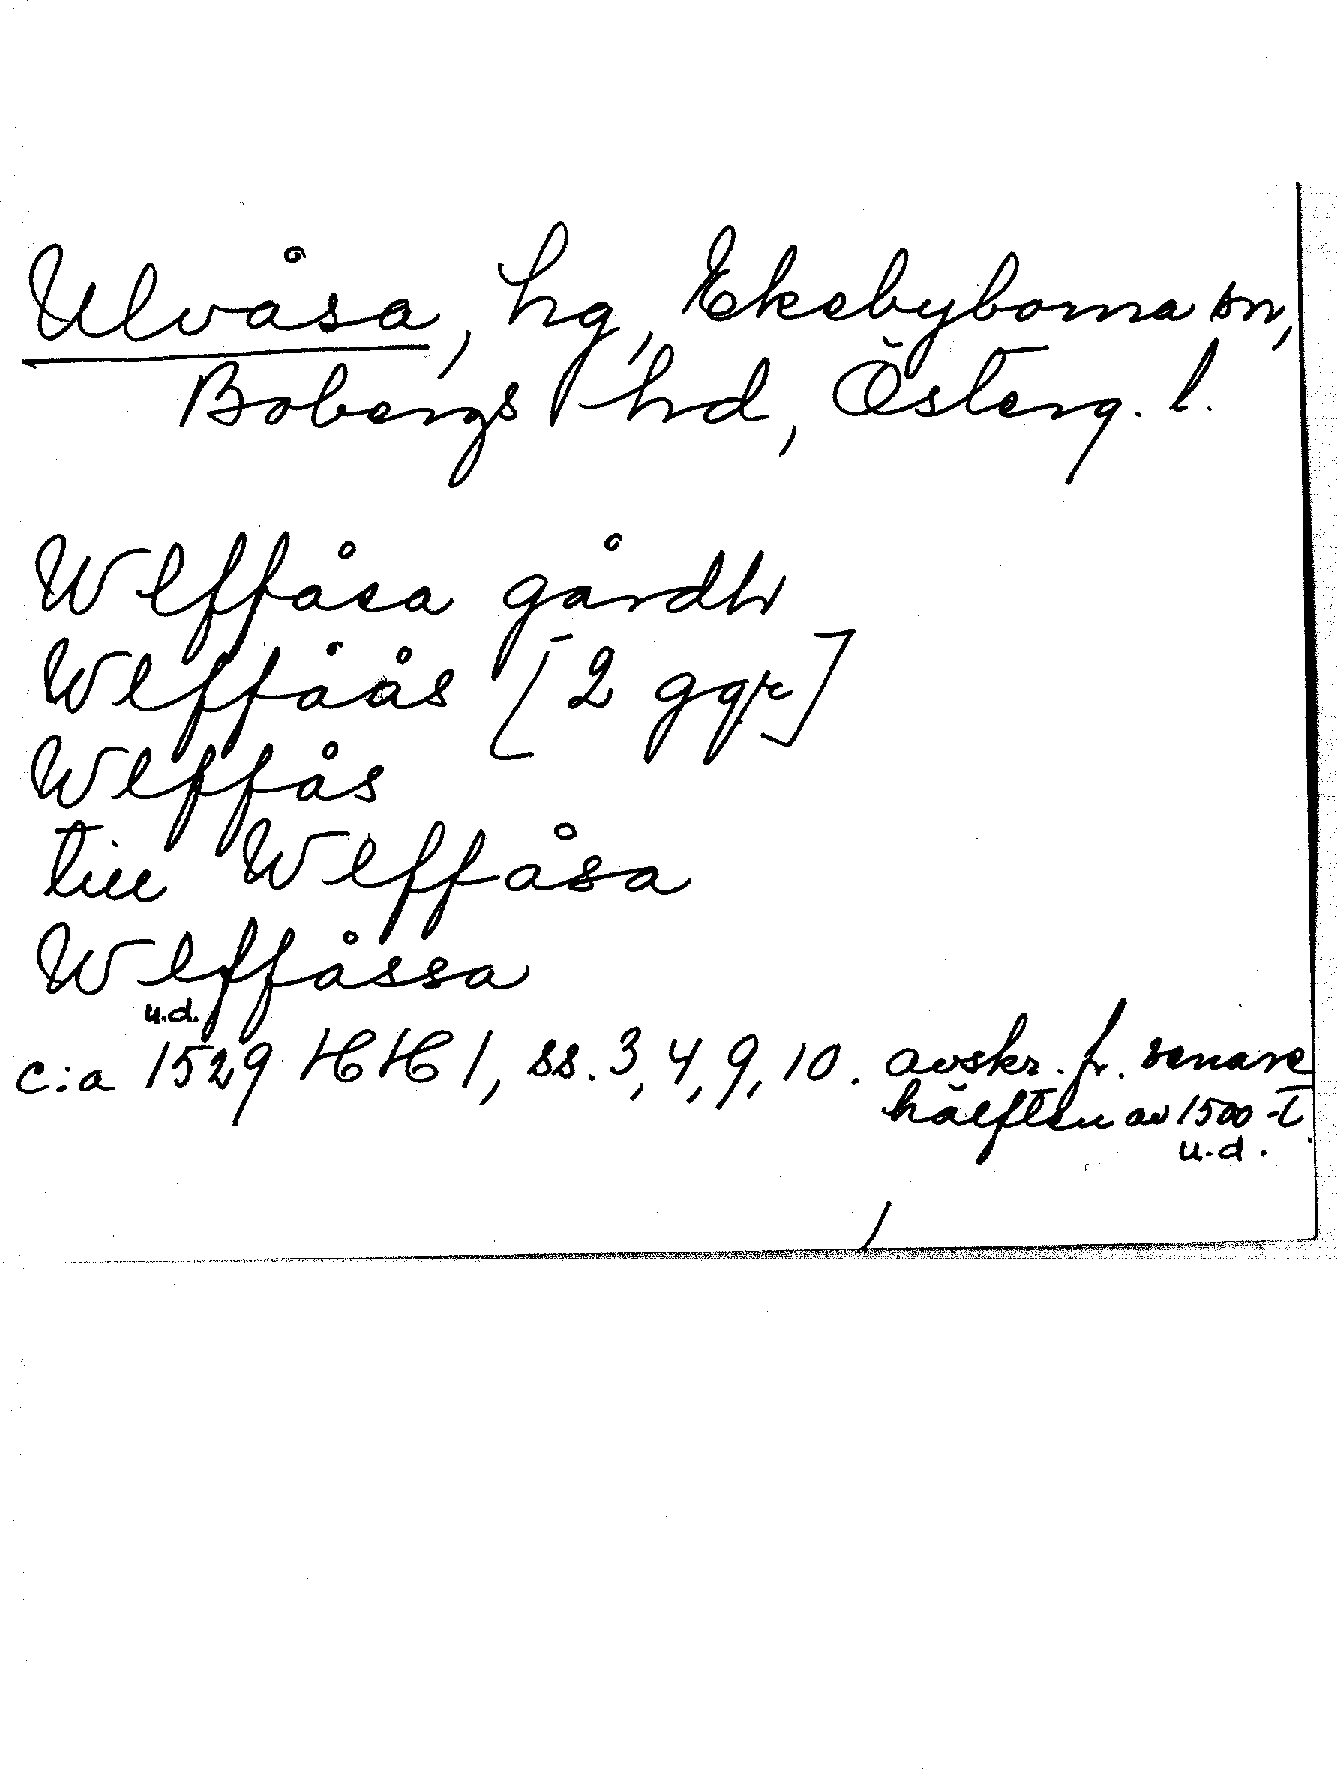 Ulvåsa, hg, Ekebyborna sn,
Bobergs hd, Österg. l.
Wlffåsa gårdh
Wlffåås [2 ggr]
Wlffås
till Wlffåsa
Wlffåssa
u.d.
c:a 1529 HH 1, ss. 3, 4, 9, 10. avskr. fr. senare
hälften av 1500-t
u.d.